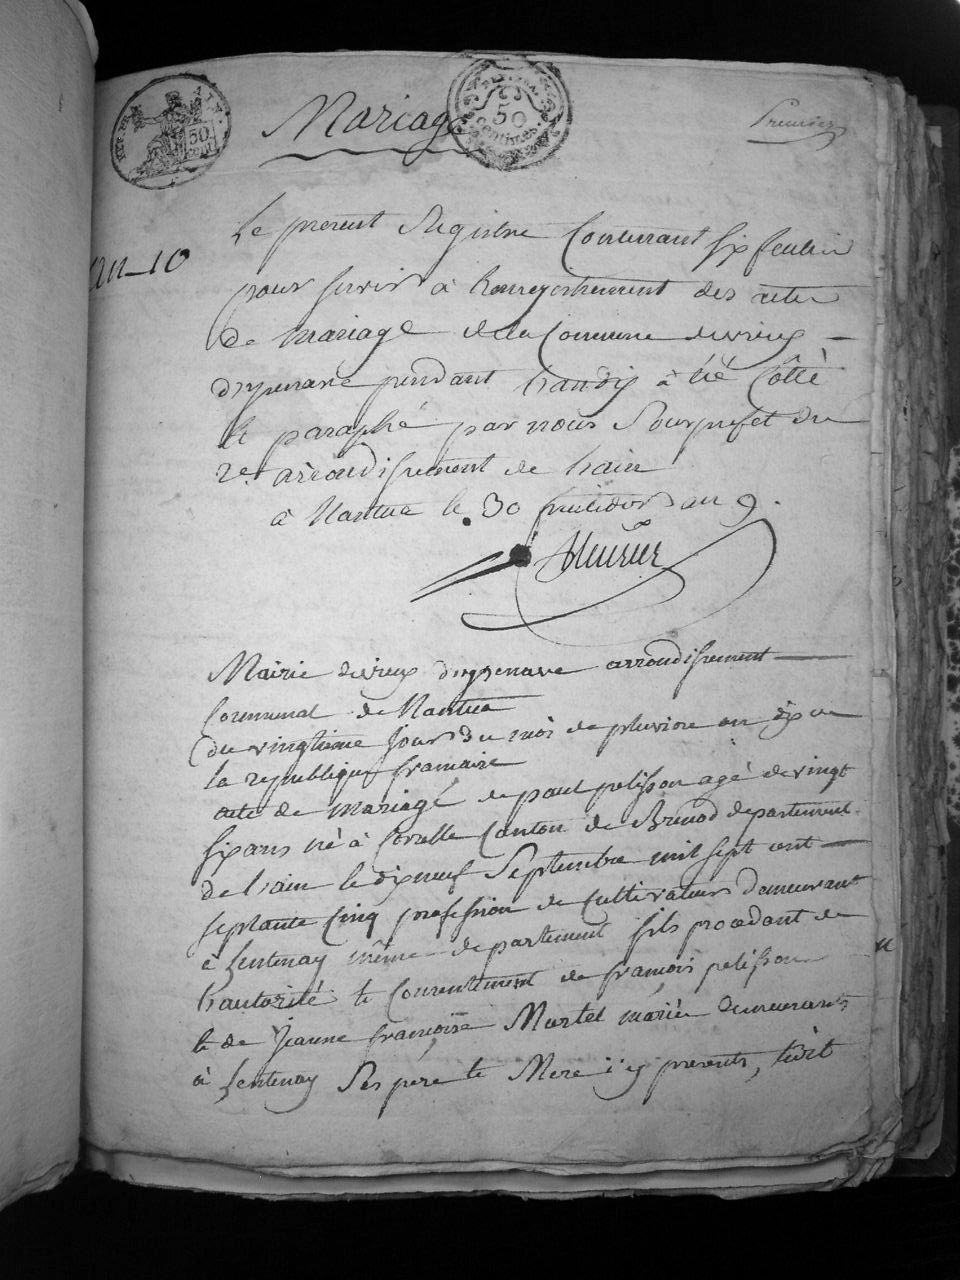 Mariage
50
Centimes
50
cent
Premier
an 10
Le present Registre Contenant six feulies
pour servir à l'enregistrement des actes
de Mariage de la Commune devieux
d'izenave pendant l'an dix à été Cotté
et paraphé par nous Sousprefet du
2e. arrondissement de l'ain
à Nantua le 30 fructidor an 9.
Mairie devieux d'izenave arrondissement
Communal de Nantua
Du vingtieme jour du mois de pluviose an dix de
la republique francaise
acte de Mariage de paul pelisson agé de vingt
six ans né à Corcelle Canton de Brenod departement
de l'ain le dix neuf Septembre mil sept cent
septante Cinq profession de Cultivateur demeurant
à Lentenay même departement fils procedant de
l'autorité et Consentement de francois pelisson
et de Jeanne françoise Martel mariés demeurants
à Lentenay Ses pere et Mere i cy presents, soit